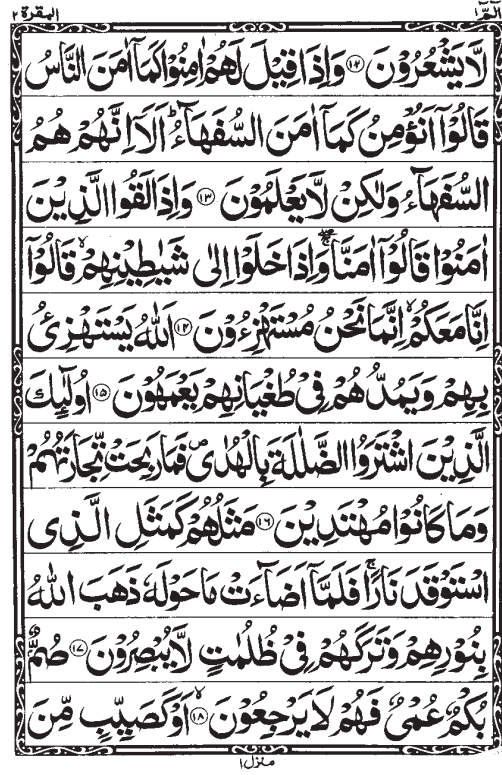 البقرة ٢
الٓمّٓ ١
لَّا يَشْعُرُوْنَ ﴿۱۲﴾ وَاِذَا قِيْلَ لَهُمْ اٰمِنُوْا كَمَآ اٰمَنَ النَّاسُ
قَالُوْٓا اَنُؤْمِنُ كَمَآ اٰمَنَ السُّفَهَآءُ ؕ اَلَآ اِنَّهُمْ هُمُ
السُّفَهَآءُ وَلٰكِنْ لَّا يَعْلَمُوْنَ ﴿۱۳﴾ وَاِذَا لَقُوا الَّذِيْنَ
اٰمَنُوْا قَالُوْٓا اٰمَنَّا ۖۚ وَاِذَا خَلَوْا اِلٰى شَيٰطِيْنِهِمْ ۙ قَالُوْٓا
اِنَّا مَعَكُمْ ۙ اِنَّمَا نَحْنُ مُسْتَهْزِءُوْنَ ﴿۱۴﴾ اَللّٰهُ يَسْتَهْزِئُ
بِهِمْ وَيَمُدُّهُمْ فِيْ طُغْيَانِهِمْ يَعْمَهُوْنَ ﴿۱۵﴾ اُولٰٓئِكَ
الَّذِيْنَ اشْتَرَوُا الضَّلٰلَةَ بِالْهُدٰى ۪ فَمَا رَبِحَتْ تِّجَارَتُهُمْ
وَمَا كَانُوْا مُهْتَدِيْنَ ﴿۱۶﴾ مَثَلُهُمْ كَمَثَلِ الَّذِى
اسْتَوْقَدَ نَارًا ۚ فَلَمَّآ اَضَآءَتْ مَا حَوْلَهٗ ذَهَبَ اللّٰهُ
بِنُوْرِهِمْ وَتَرَكَهُمْ فِيْ ظُلُمٰتٍ لَّا يُبْصِرُوْنَ ﴿۱۷﴾ صُمٌّۢ
بُكْمٌ عُمْيٌ فَهُمْ لَا يَرْجِعُوْنَ ﴿۱۸﴾ ۙ اَوْ كَصَيِّبٍ مِّنَ
منزل ١